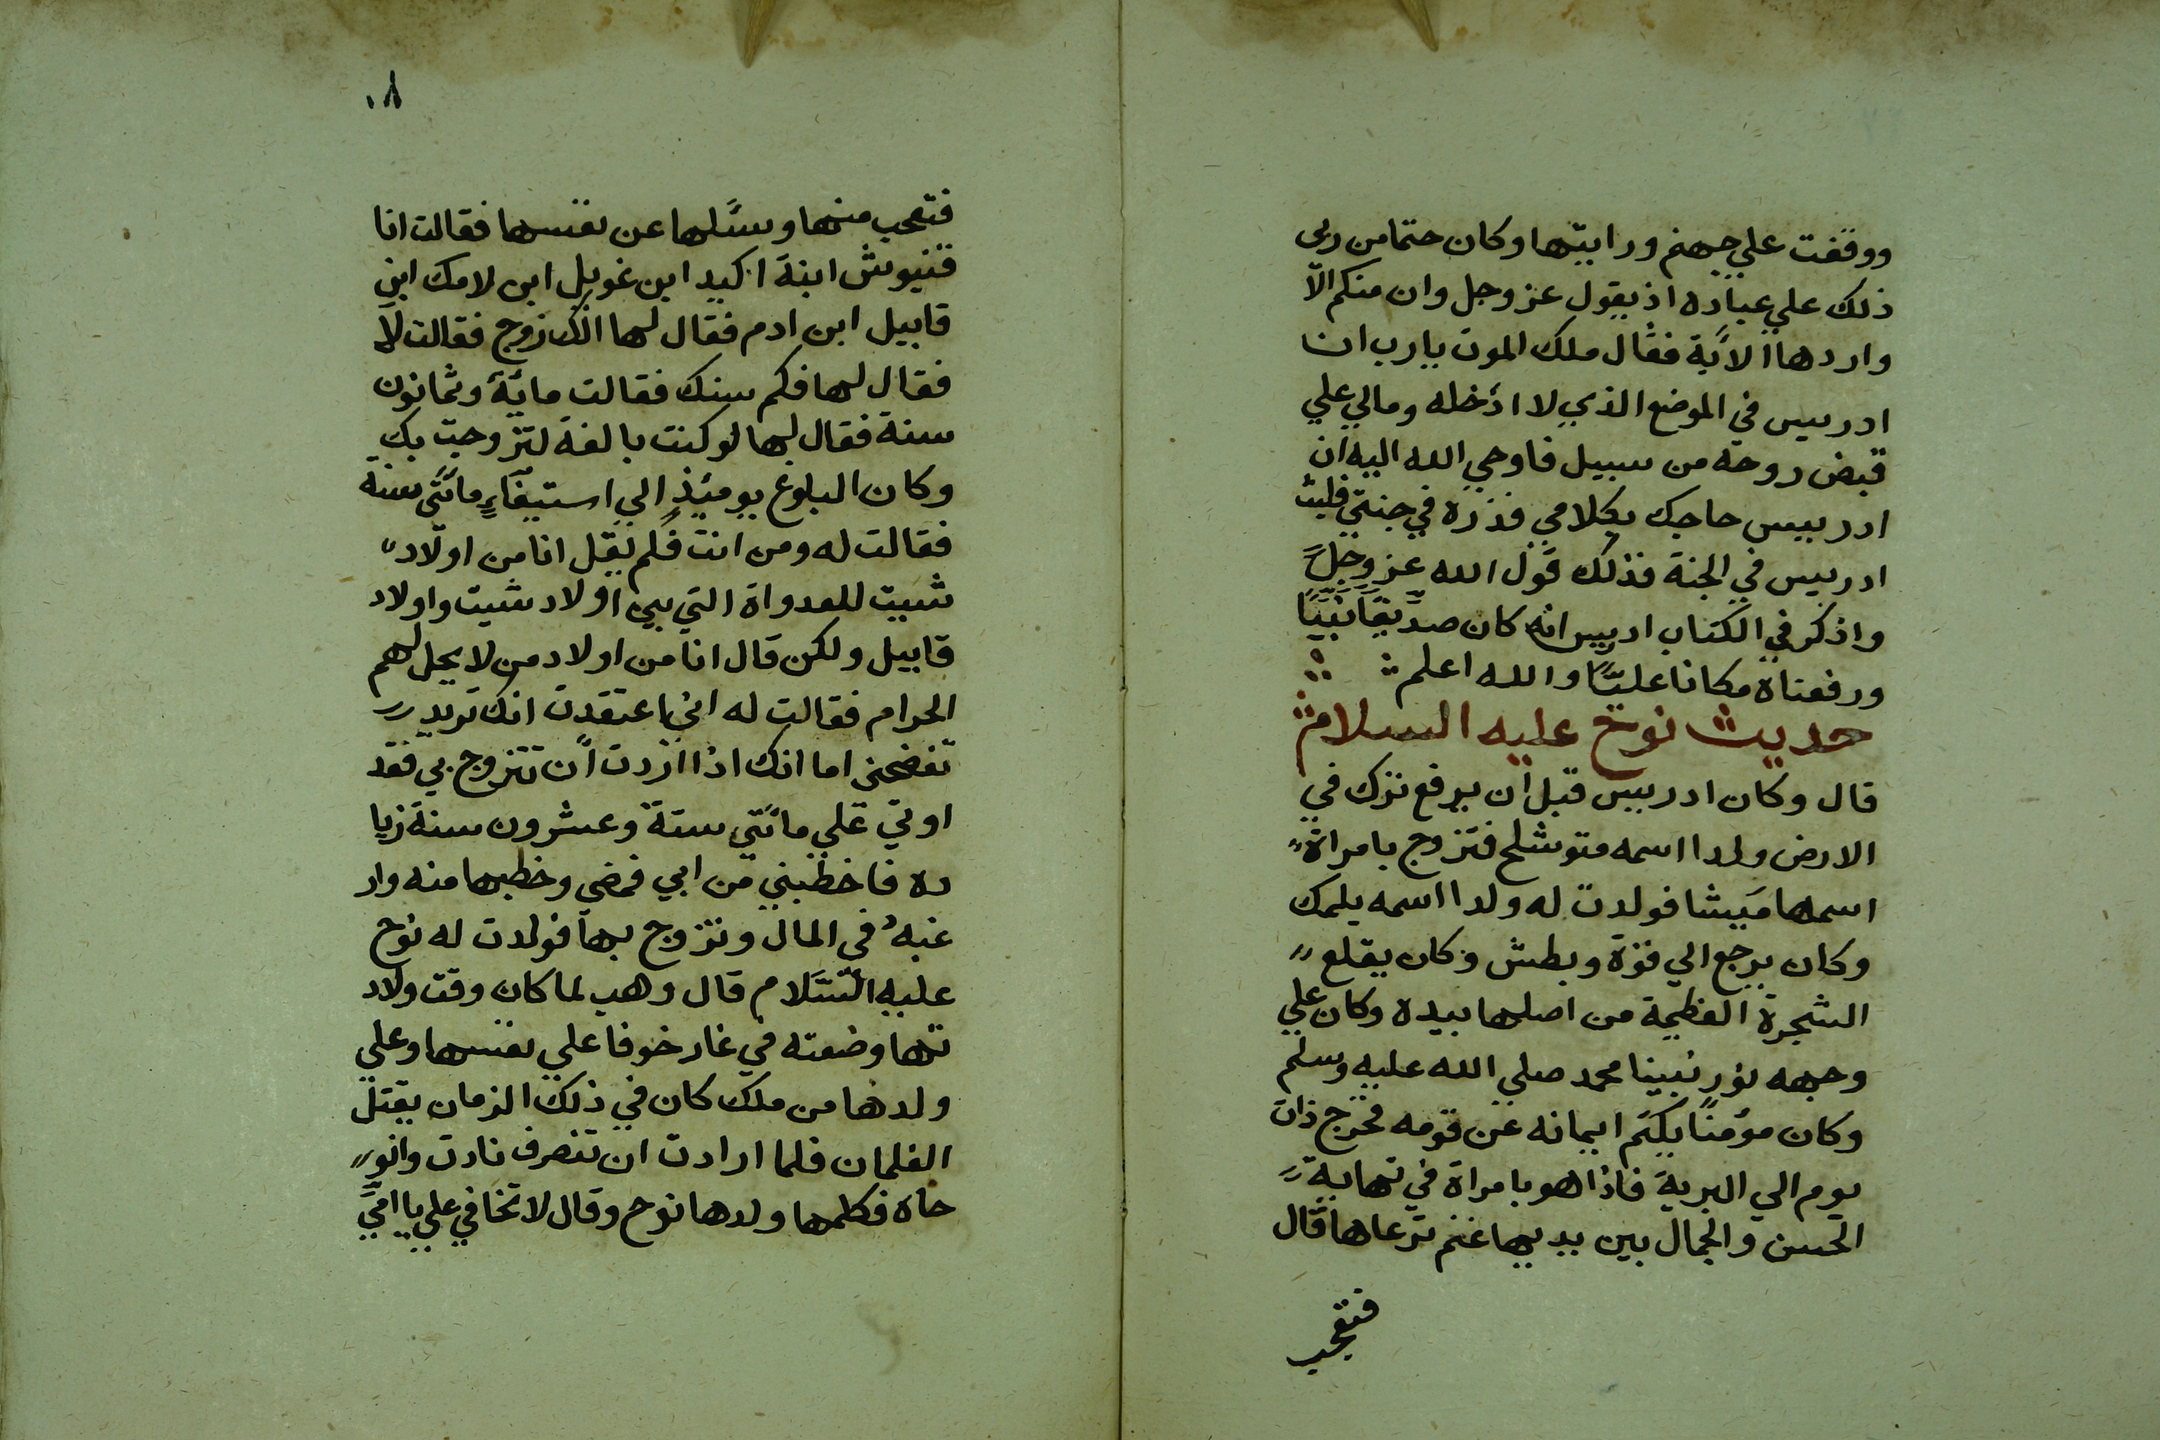 ووقفت علي جهنم ورايتها وكان حتما من ربي
ذلك علي عباده اذ يقول عز وجل وان منكم الّا
واردها الاية فقال ملك الموت يا رب ان
ادريس في الموضع الذي لا ادخله ومالي علي
قبض روحه من سبيل فاوحي الله اليه ان
ادريس حاجك بكلامي فذره في جنتي فلبث
ادريس في الجنة فذلك قول الله عز وجل
واذكر في الكتاب ادريس انه كان صدّيقًا نبيّا
ورفعناه مكانا عليّا والله اعلم
حديث نوح عليه السلام
قال وكان ادريس قبل ان يرفع ترك في
الارض ولدا اسمه متوشلح فتزوج بامراة
اسمها ميشا فولدت له ولدا اسمه يلمك
وكان يرجع الي قوة وبطش وكان يقلع
الشجرة العظيمة من اصلها بيده وكان علي
وجهه نور نبينا محمد صلي الله عليه وسلم
وكان مؤمنًا يكتم ايمانه عن قومه فخرج ذات
يوم الي البرية فاذا هو بامراة في نهاية
الحسن والجمال بين يديها غنم ترعاها قال
فتعجب
٨٠
فتعجب منها وسئلها عن نفسها فقالت انا
قنيوش ابنة اكيد ابن غويل ابن لامك ابن
قابيل ابن ادم فقال لها الك زوج فقالت لا
فقال لها فكم سنك فقالت ماية وثمانون
سنة فقال لها لو كنت بالغة لتزوجت بك
وكان البلوغ يومئذ الي استيفاءٍ مائتي سنة
فقالت له ومن انت فلم يقل انا من اولاد
شيت للعدواة التي بين اولاد شيت واولاد
قابيل ولكن قال انا من اولاد من لا يحل لهم
الحرام فقالت له اني اعتقدت انك تريد
تفضحني اما انك اذا اردت ان تتزوج بي فقد
اوتي علي مائتي ستة وعشرون سنة زيا
ده فاخطبني من ابي فمضي وخطبها منه وار
غبه في المال وتزوج بها فولدت له نوح
عليه السّلام قال وهب لما كان وقت ولاد
تها وضعته في غار خوفا علي نفسها وعلي
ولدها من ملك كان في ذلك الزمان يقتل
الغلمان فلما ارادت ان تنصرف نادت وانو
حاه فكلمها ولدها نوح وقال لا تخافي علي يا امي